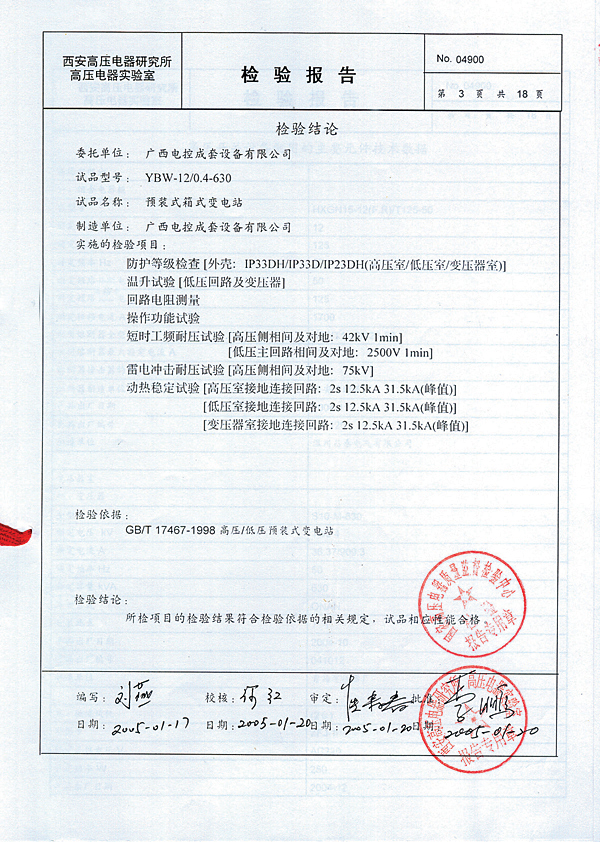 西安高压电器研究所
高压电器实验室
检验报告
No. 04900
第 3 页 共 18 页
检验结论
委托单位：广西电控成套设备有限公司
试品型号：YBW-12/0.4-630
试品名称：预装式箱式变电站
制造单位：广西电控成套设备有限公司
实施的检验项目：
防护等级检查 [外壳：IP33DH/IP33D/IP23DH(高压室/低压室/变压器室)]
温升试验 [低压回路及变压器]
回路电阻测量
操作功能试验
短时工频耐压试验 [高压侧相间及对地：42kV 1min]
[低压主回路相间及对地：2500V 1min]
雷电冲击耐压试验 [高压侧相间及对地：75kV]
动热稳定试验 [高压室接地连接回路：2s 12.5kA 31.5kA(峰值)]
[低压室接地连接回路：2s 12.5kA 31.5kA(峰值)]
[变压器室接地连接回路：2s 12.5kA 31.5kA(峰值)]
检验依据：
GB/T 17467-1998 高压/低压预装式变电站
检验结论：
所检项目的检验结果符合检验依据的相关规定，试品相应性能合格
报告专用章
编写： 校核： 审定： 批准：
日期：2005-01-17 日期：2005-01-20 日期：2005-01-20 日期：2005-01-20
报告专用章